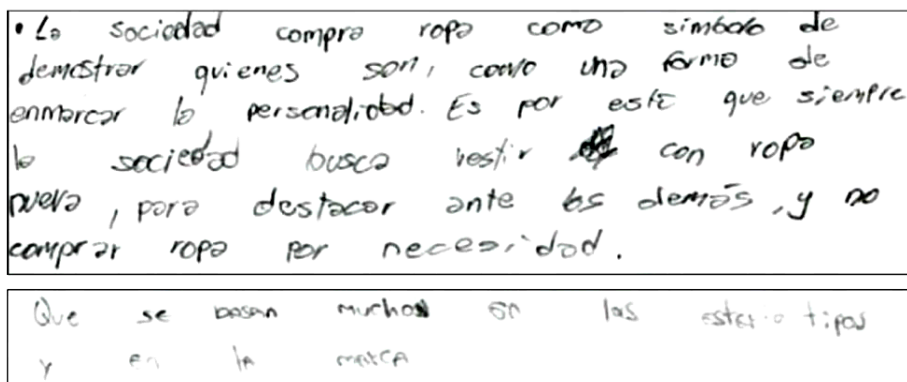 • La sociedad compra ropa como simbolo de
demostrar quienes son, como una forma de
enmarcar la personalidad. Es por esto que siempre
la sociedad busca vestir con ropa
nueva, para destacar ante los demás, y no
comprar ropa por necesidad.
Que se basan muchos en las estereotipos
y en la marca